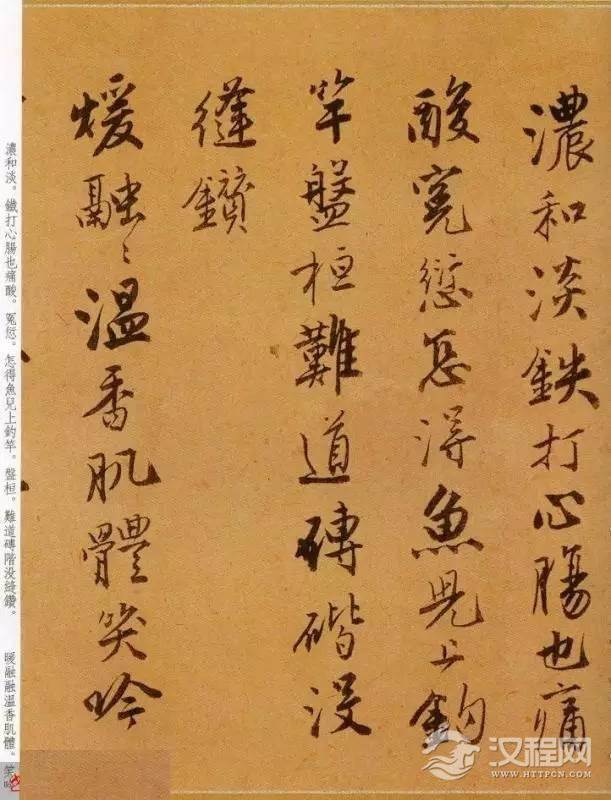 濃和淡鉄打心腸也痛
酸寃愆怎得魚児上鈎
竿盤桓難道磚階没
縫鑽
煖融〻溫香肌體笑吟
濃和淡。鐵打心腸也痛酸。冤愆。怎得魚兒上釣竿。盤桓。難道磚階没縫鑽。　暖融融溫香肌體。笑吟
汉程网
WWW.HTTPCN.COM